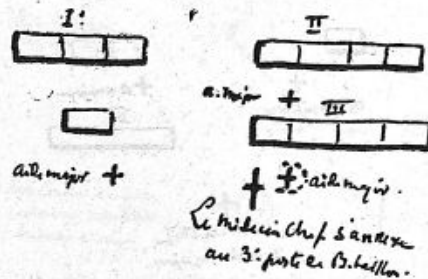 I:
II
a. major +
III
aide major +
+ aide major.
Le médecin Chef s'annexe
au 3e poste de Bataillon.